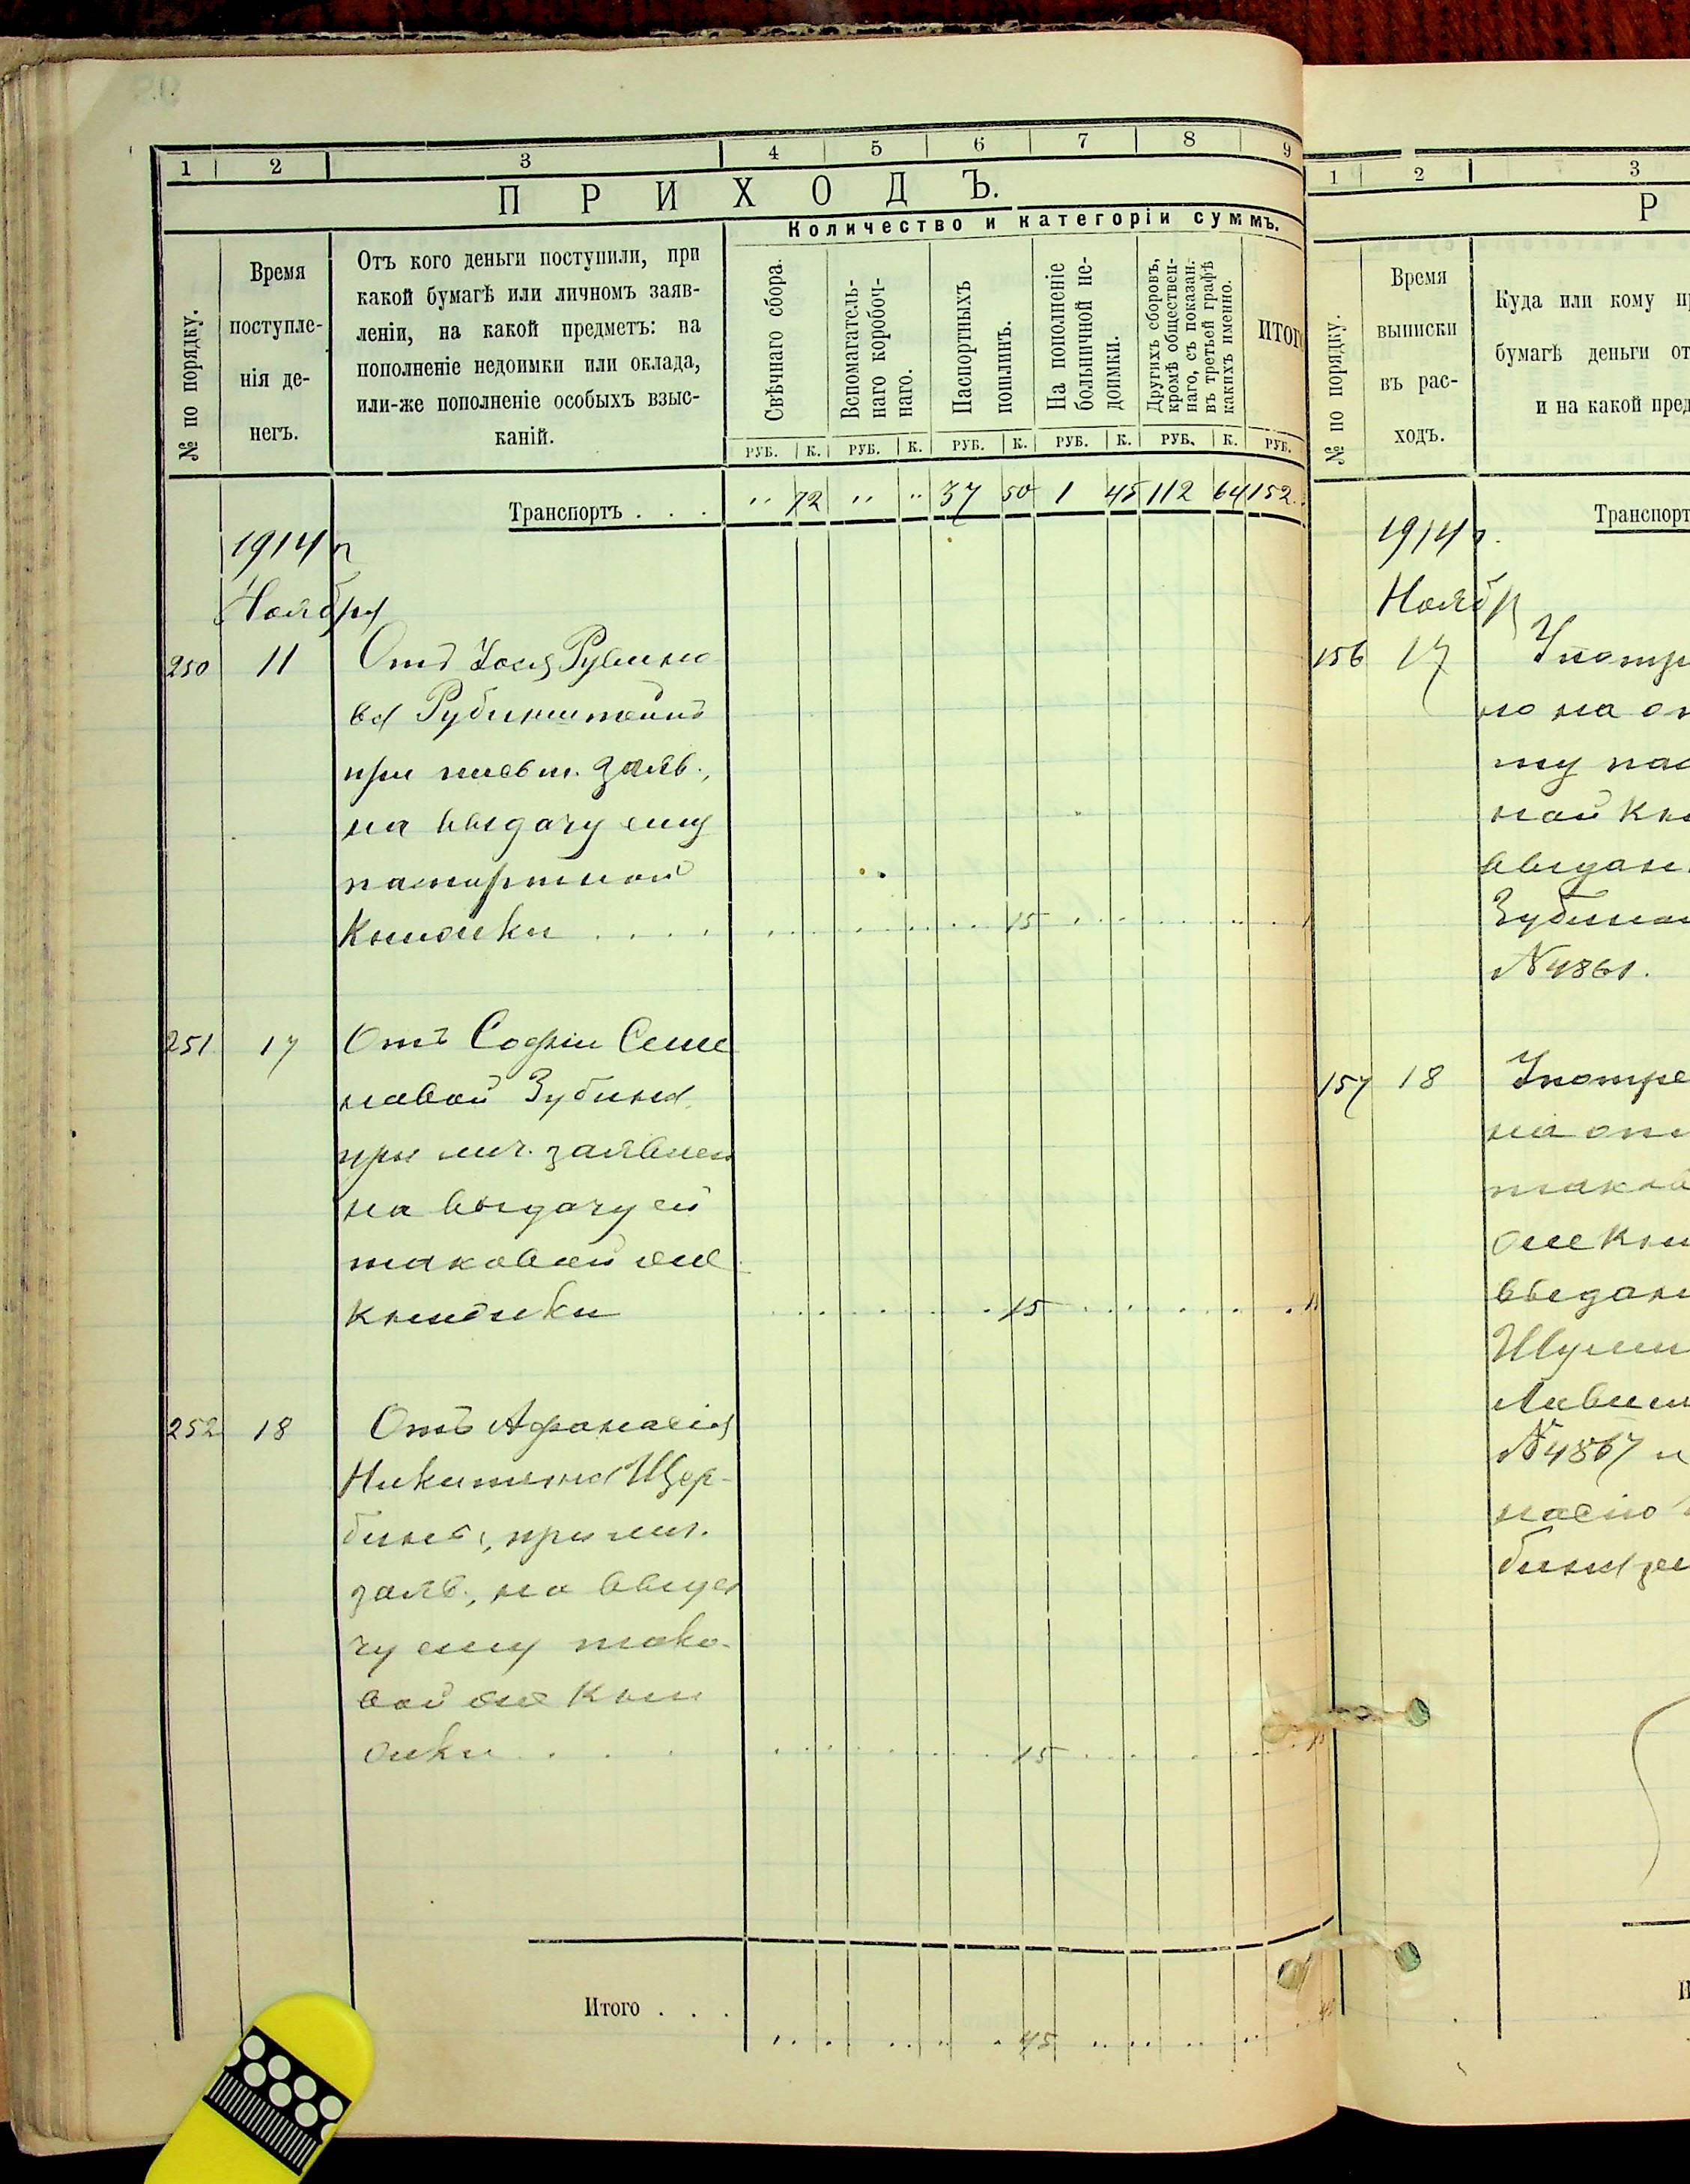 1 2 3 4 5 6 7 8 9
ПРИХОДЪ.
№ по порядку.
Время
поступле-
нія де-
негъ.
Отъ кого деньги поступили, при
какой бумагѣ или личномъ заяв-
леніи, на какой предметъ: на
пополненіе недоимки или оклада,
или-же пополненіе особыхъ взыс-
каній.
Количество и категоріи суммъ.
Свѣчнаго сбора.
Вспомагатель-
наго коробоч-
наго.
Паспортныхъ
пошлинъ.
На пополненіе
больничной не-
доимки.
Другихъ сборовъ,
кромѣ обществен-
наго, съ показан.
въ третьей графѣ
какихъ именно.
ИТОГО
РУБ. К. РУБ. К. РУБ. К. РУБ. К. РУБ. К. РУБ.
Транспортъ . . . " 72 " " 37 50 1 45 112 64 152
1914 г
Ноября
250 11 Отъ Рувино
ва Рубинштейна
при заяв.,
на выдачу ему
паспортной
Книжки . . . . 15
251 17 Отъ Софіи Семе
новой Зубина
при лич. заявлен
на выдачу ей
таковой же
книжки 15
252 18 Отъ Афанасія
Никитина Щер-
бина, при лич.
заяв., на выда
чу ему тако-
вой же Кни
жки . . . 15
Итого . . . 45
1 2 3
Р
№ по порядку.
Время
выписки
въ рас-
ходъ.
Куда или кому
бумагѣ деньги от
и на какой пред
Транспорт
1914 г.
Ноябр
156 17 Употре
но на от
ту пас
ной Кни
выдан
Зубиной
№ 4861.
157 18 Употре
на оп
таков
же Кни
выдан
№ 4867 и
насію
бина